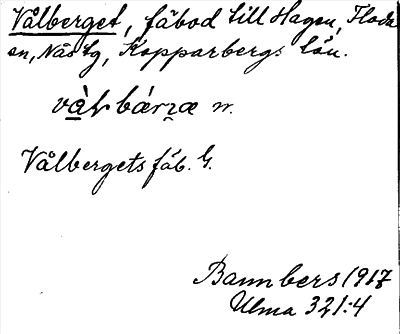 Vålberget, fäbod till Hagen, Floda
sn, Näs tg, Kopparbergs län.
Vålbergets fäb. G.
Bannbers 1917
Ulma 321:4